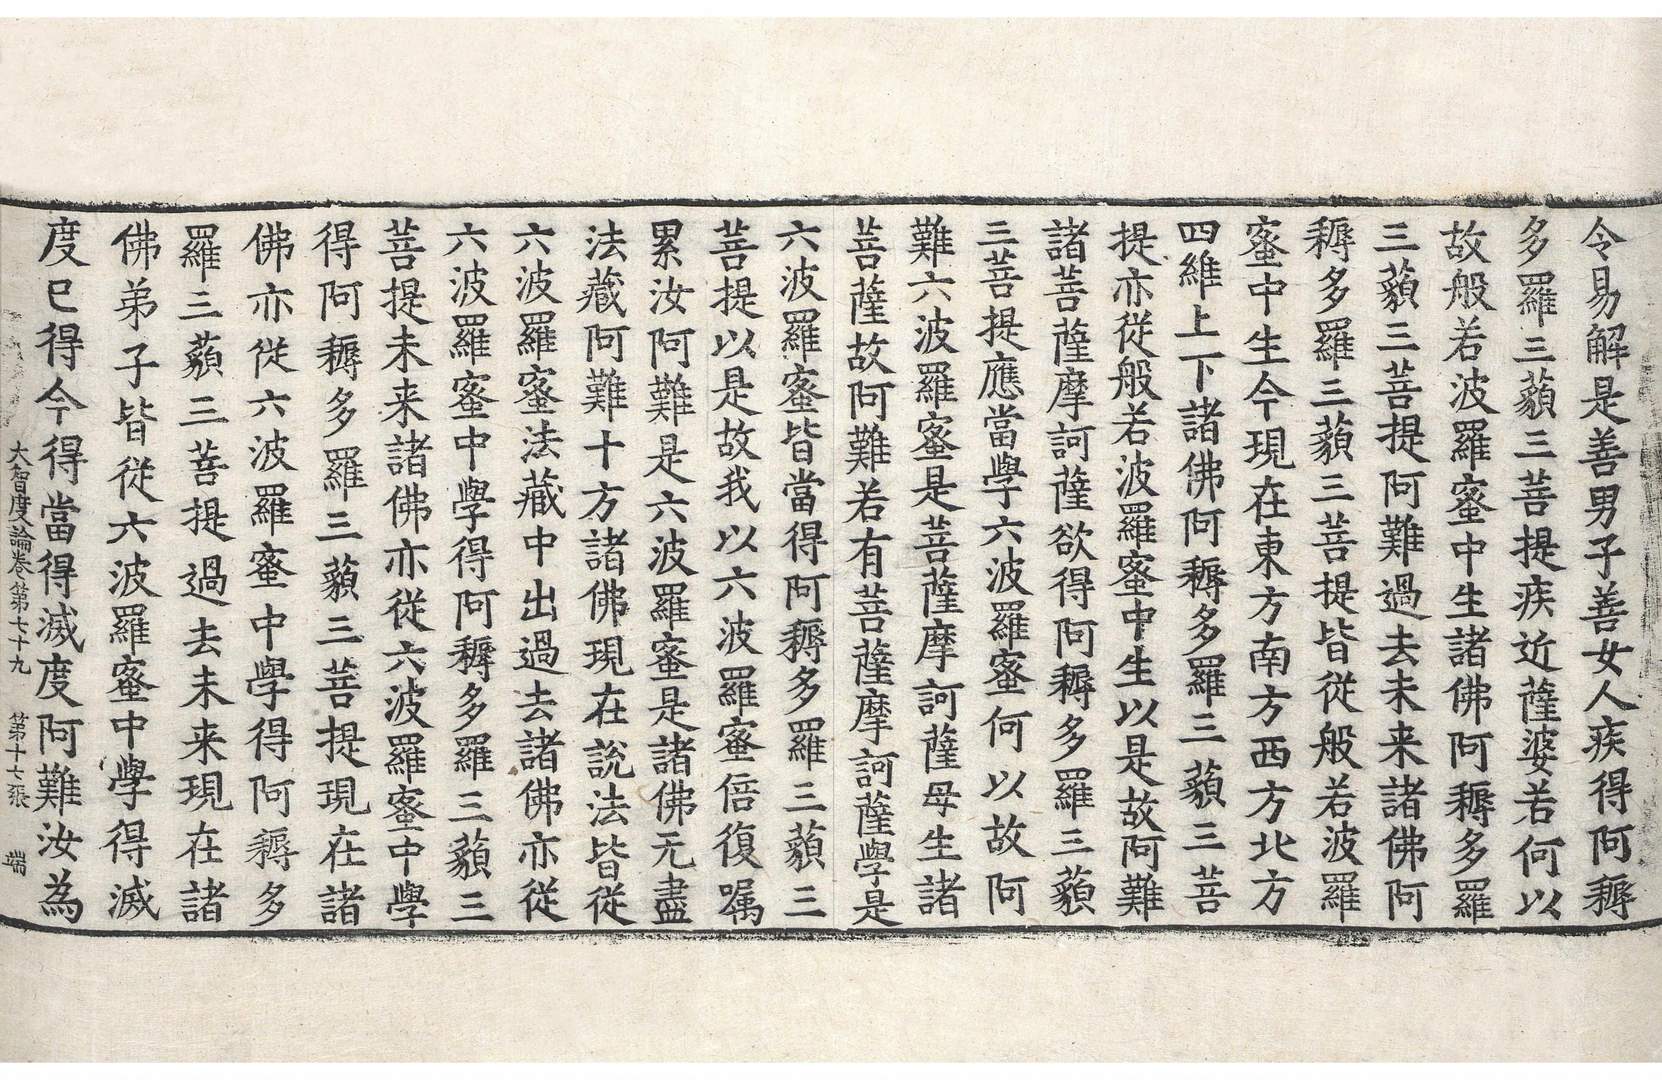 令易解是善男子善女人疾得阿耨
多羅三藐三菩提疾近薩婆若何以
故般若波羅蜜中生諸佛阿耨多羅
三藐三菩提阿難過去未来諸佛阿
耨多羅三藐三菩提皆從般若波羅
蜜中生今現在東方南方西方北方
四維上下諸佛阿耨多羅三藐三菩
提亦從般若波羅蜜中生以是故阿難
諸菩薩摩訶薩欲得阿耨多羅三藐
三菩提應當學六波羅蜜何以故阿
難六波羅蜜是菩薩摩訶薩母生諸
菩薩故阿難若有菩薩摩訶薩學是
六波羅蜜皆當得阿耨多羅三藐三
菩提以是故我以六波羅蜜倍復嘱
累汝阿難是六波羅蜜是諸佛无盡
法藏阿難十方諸佛現在說法皆從
六波羅蜜法藏中出過去諸佛亦從
六波羅蜜中學得阿耨多羅三藐三
菩提未来諸佛亦從六波羅蜜中學
得阿耨多羅三藐三菩提現在諸
佛亦從六波羅蜜中學得阿耨多
羅三藐三菩提過去未来現在諸
佛弟子皆從六波羅蜜中學得滅
度已得今得當得滅度阿難汝為
大智度論卷第七十九 第十七張 端